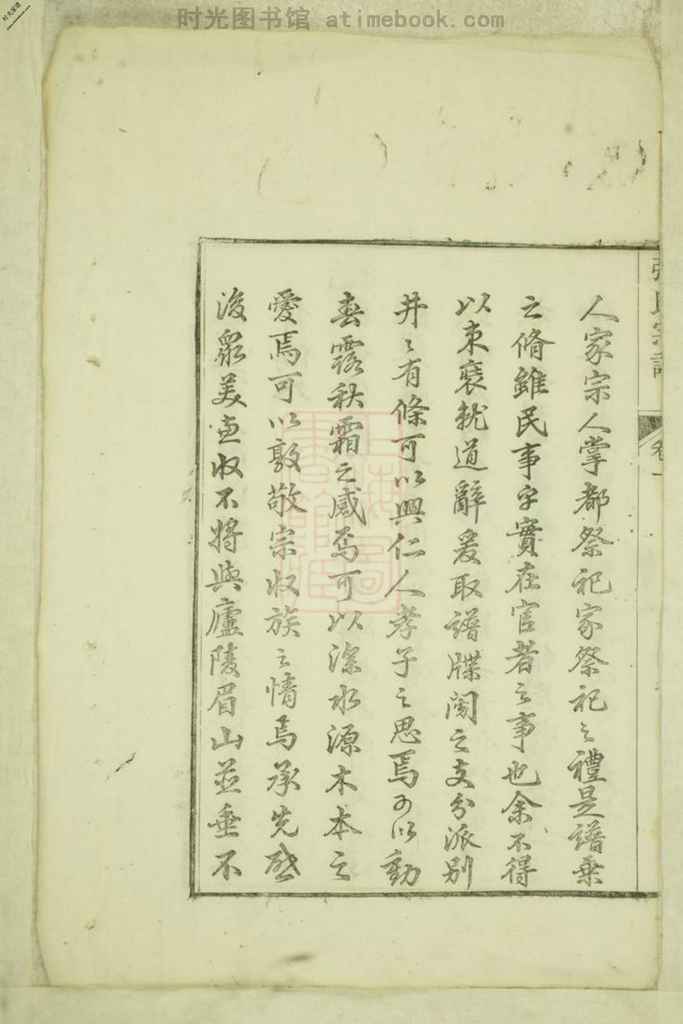 时光图书馆 atimebook.com
人家宗人掌都祭祀家祭祀之禮是譜乗
之脩雖民事乎實在官者之事也余不得
以束裹軷道辭爰取譜牒閱之支分派别
井〻有條可以興仁人孝子之思焉可以動
春露秋霜之感焉可以深水源木本之
愛焉可以敦敬宗收族之情焉承先啟
後衆美悉收不將與廬陵眉山並垂不
卷一